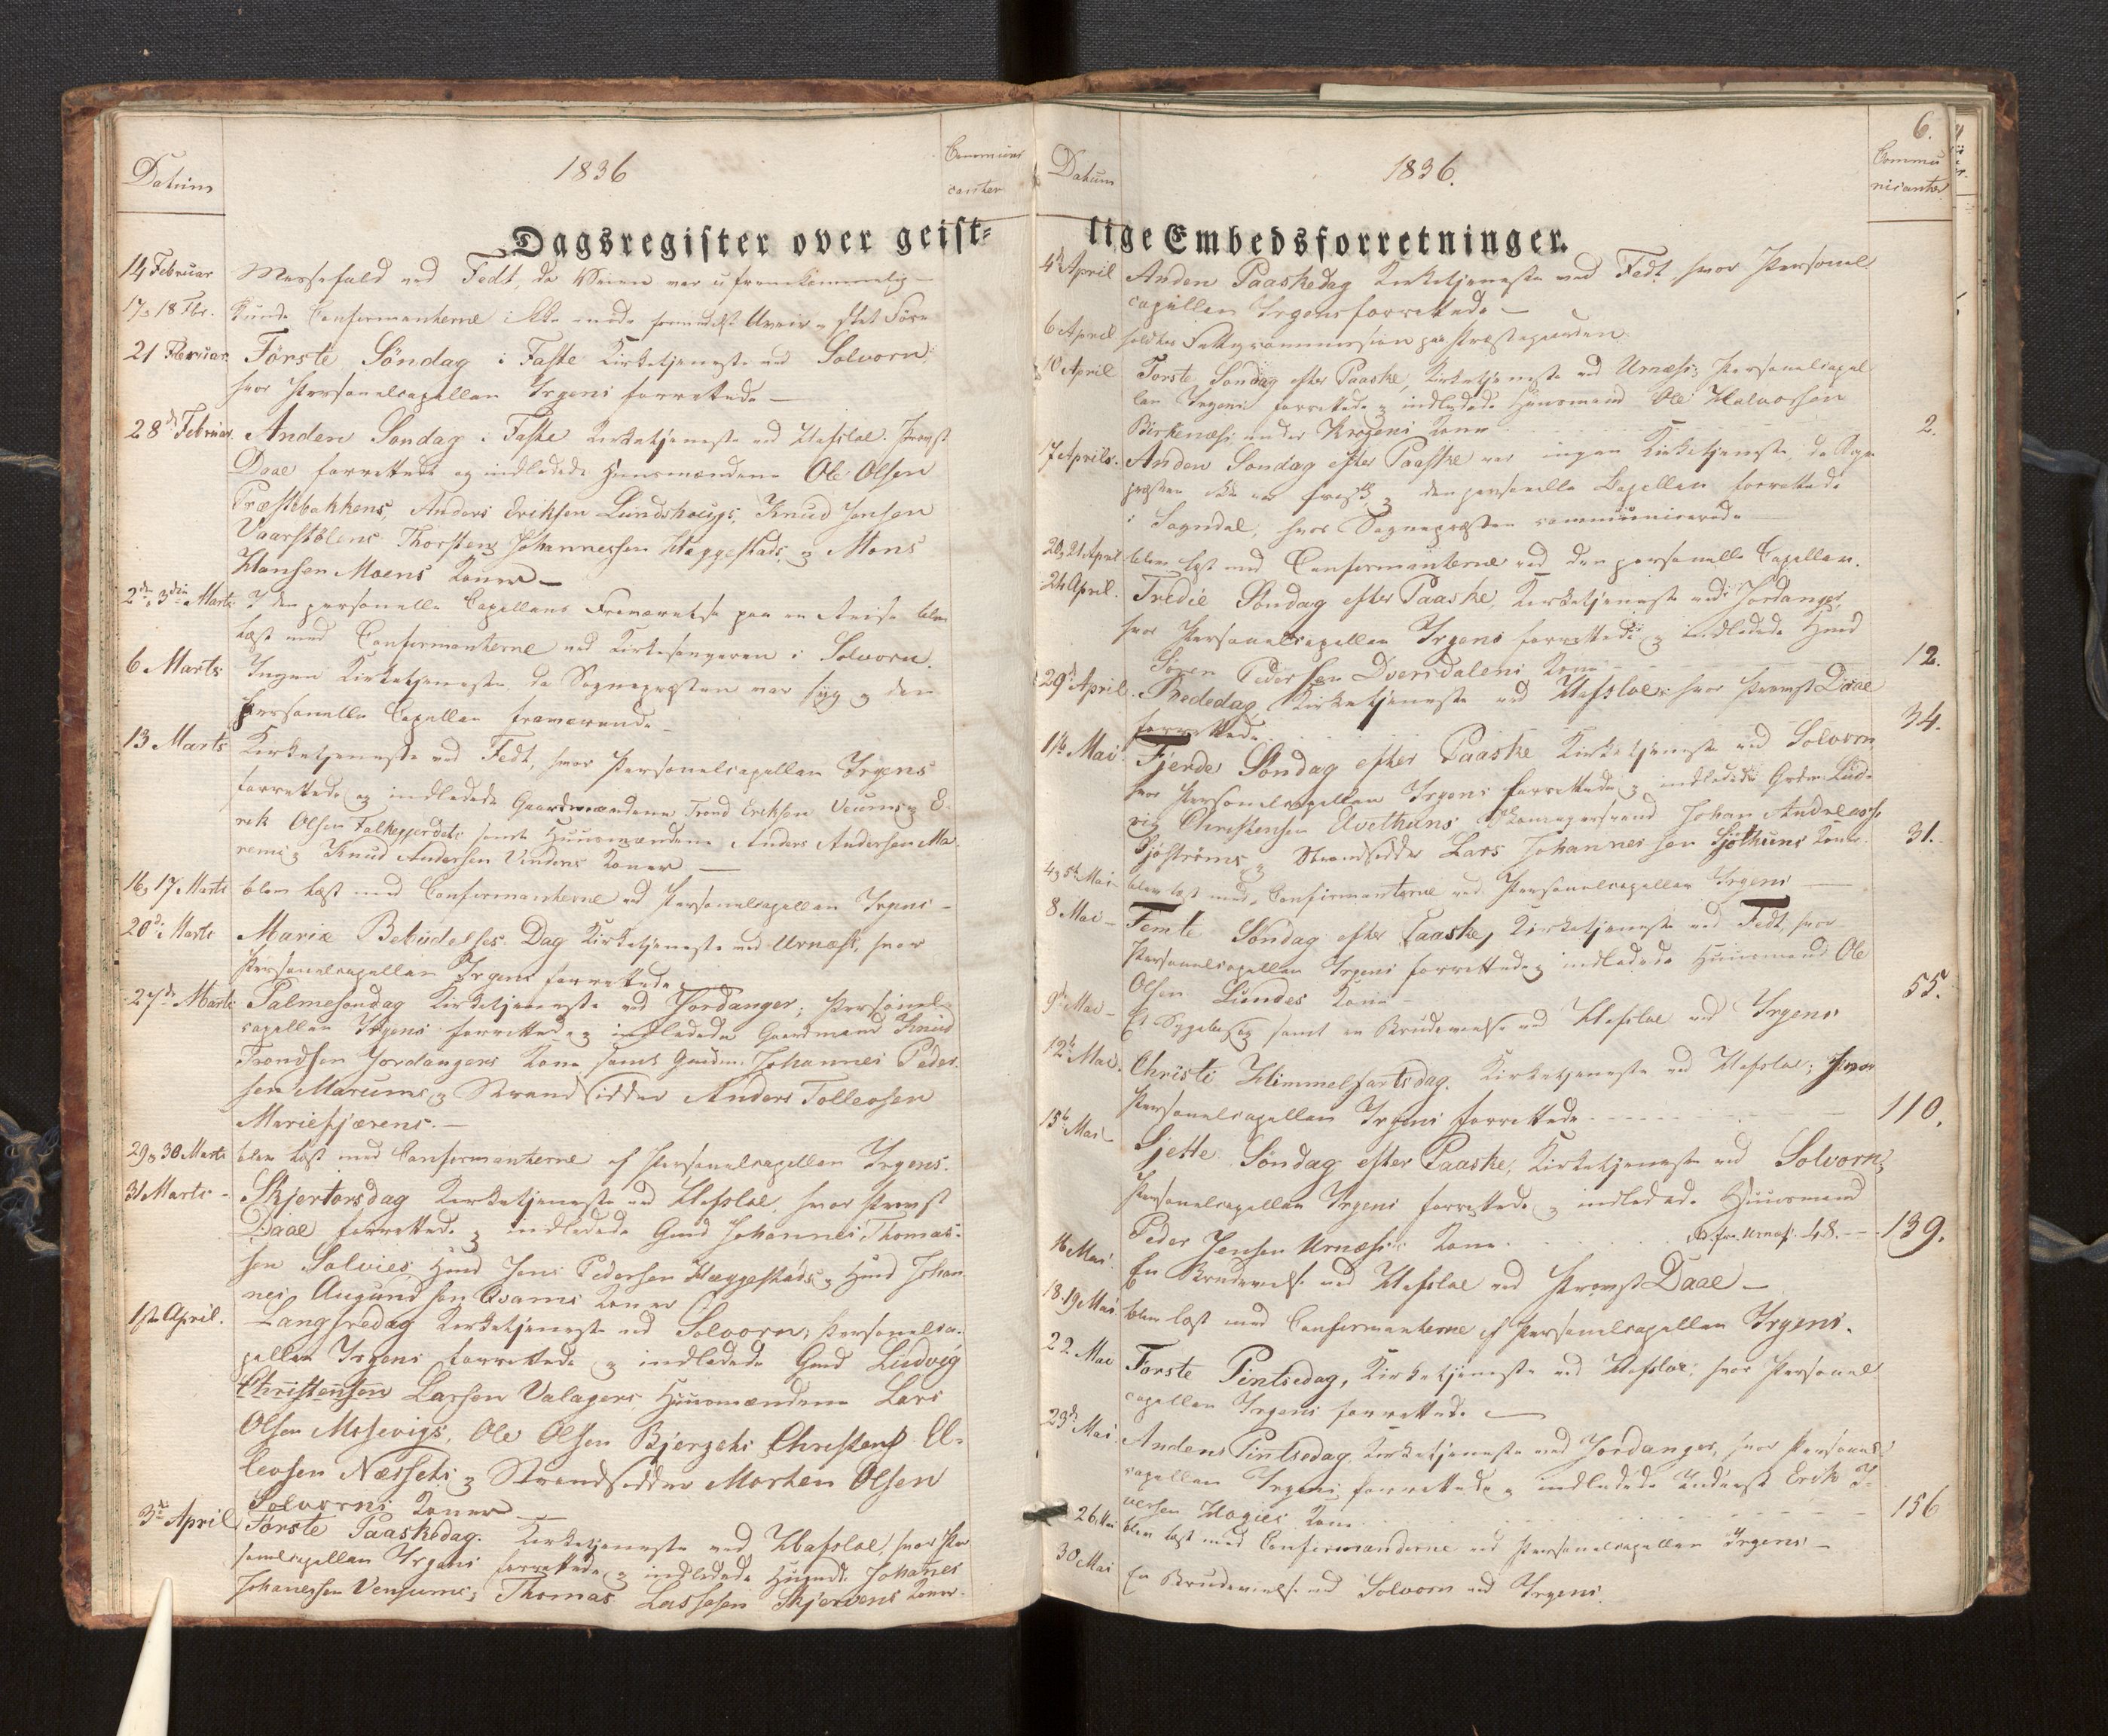 Datum
1836
Communi
canter
Dagsregister over geist-
14 Februar Messefald ved Fedt, da Veien var ufremkommelig —
17 & 18 Fbr. Kunde Confirmanterne ikke møde formedelst Uveir & slet Føre
21 Februar Første Søndag i Faste Kirketjeneste ved Solvorn;
hvor Personelcapellan Irgens forrettede —
28de Februar. Anden Søndag i Faste Kirketjeneste ved Hafsloe. Provst
Daae forrettede og indledede Huusmændene Ole Olsen
Præstebakkens, Anders Eriksen Lundshaugs, Knud Jensen
Vaarstølens Thorsten Johannessen Hæggestads, & Mons
Hansen Moens Koner —
2den, 3die Marts I den personelle Capellans Fraværelse paa en Reise blev
læst med Confirmanterne ved Kirkesangeren i Solvorn.
6 Marts Ingen Kirketjeneste da Sognepræsten var syg & den
personelle Capellan fraværende
13 Marts Kirketjeneste ved Fedt, hvor Personelcapellan Irgens
forrettede og indledede Gaardmændene Trond Eriksen Veums & E-
rik Olsen Falkegjerdets samt Huusmændene Anders Andersen Mo-
rems & Knud Andersen Vindens Koner —
16 & 17 Marts blev læst med Confirmanterne ved Personelcapellan Irgens —
20de Marts Mariæ Bebudelses Dag Kirketjeneste ved Urnæss, hvor
Personelcapellan Irgens forrettede
27de Marts Palmesøndag Kirketjeneste ved Jordanger; Personel-
capellan Irgens forrettede & indledede Gaardmand Knud
Trondsen Jordangers Kone samt Gaardm. Johannes Peder-
sen Marums & Strandsidder Anders Tollevsen
Mariefjærens. —
29 & 30 Marts blev læst med Confirmanterne af Personelcapellan Irgens.
31 Marts - Skjertorsdag Kirketjeneste ved Hafsloe, hvor Provst
Daae forrettede & indledede Gmd Johannes Thomas-
sen Solvies Hmd Jens Pedersen Hæggestads & Hmd Johan-
nes Augundsen Qvams Koner
1ste April. Langfredag Kirketjeneste ved Solvorn; Personelca-
pellan Irgens forrettede & indledede Gmd Ludvig
Christensen Larsen Valagers Huusmændene Lars
Olsen Mosevigs, Ole Olsen Bjerzets Christen El-
levsen Næssets & Strandsidder Morten Olsen
Solvorns Koner
3de April Første Paaskedag. Kirketjeneste ved Hafsloe, hvor Per-
sonelcapellan Irgens forrettede & indledede Huusmd. Johanes
Johanessen Vensums; Thomas Lassesen Skjervens Koner.
6.
Datum
1836.
Commu
nicanter
lige Embedsforretninger.
4de April Anden Paaskedag Kirketjeneste ved Fedt hvor Personel
capellan Irgens forrettede —
6 April holdtes Fattigcommission paa Præstegaarden.
10 April Første Søndag efter Paaske, Kirketjeneste ved Urnæss; Personelcapel
lan Irgens forrettede & indledede Huusmand Ole Halvorsen
Birkenæss under Krogens Kone 2.
17 Aprils. Anden Søndag efter Paaske var ingen Kirketjeneste, da Sogne
præsten ikke var frisk & den personelle Capellan forrettede
i Sogndal, hvor Sognepræsten communicerede
20, 21 April blev læst med Confirmanterne ved den personelle Capellan.
24 April. Tredie Søndag efter Paaske, Kirketjeneste ved Jordanger,
hvor Personelcapellan Irgens forrettede & indledede Hmd
Søren Pedersen Dversdalens Kone 12.
29de April. Bededag Kirketjeneste ved Hafsloe: hvor Provst Daae
forrettede 34.
1ste Mai. Fjerde Søndag efter Paaske Kirketjeneste ved Solvorn
hvor Personelcapellan Irgens forrettede & indledede Grdm. Lud-
vig Christensen Elvethuns Johan Andreass
Sjøstrøms & Strandsidder Lars Johannessen Sjøthuns Koner. 31.
4 & 5te Mai - blev læst med Confirmanterne ved Personelcapellan Irgens —
8 Mai - Femte Søndag efter Paaske, Kirketjeneste ved Fedt, hvor
Personelcapellan Irgens forrettede & indledede Huusmand Ole
Olsen Lundes Kone - 55.
9de Mai - Et Sygebesøg samt en Brudevielse ved Hafsloe ved Irgens
12te Mai. Christi Himmelfartsdag. Kirketjeneste ved Hafsloe; hvor
Personelcapellan Irgens forrettede 110.
15te Mai - Sjette Søndag efter Paaske, Kirketjeneste ved Solvorn;
Personelcapellan Irgens forrettede & indledede Huusmand
Peder Jensen Urnæss Kone fra Urnæs. 48. - 139.
16 Mai. En Brudevielse ved Hafsloe ved Provst Daae —
18. 19 Mai. blev læst med Confirmanterne af Personelcapellan Irgens.
22 Mai Første Pintsedag, Kirketjeneste ved Hafsloe; hvor Personel
capellan Irgens forrettede —
23de Mai. Anden Pintsedag, Kirketjeneste ved Jordanger, hvor Personel
capellan Irgens forrettede & indledede Erik I-
versen Hagies Kone 156
26. Mai blev læst med Confirmanderne ved Personelcapellan Irgens —
30 Mai En Brudevielse ved Solvorn ved Irgens.